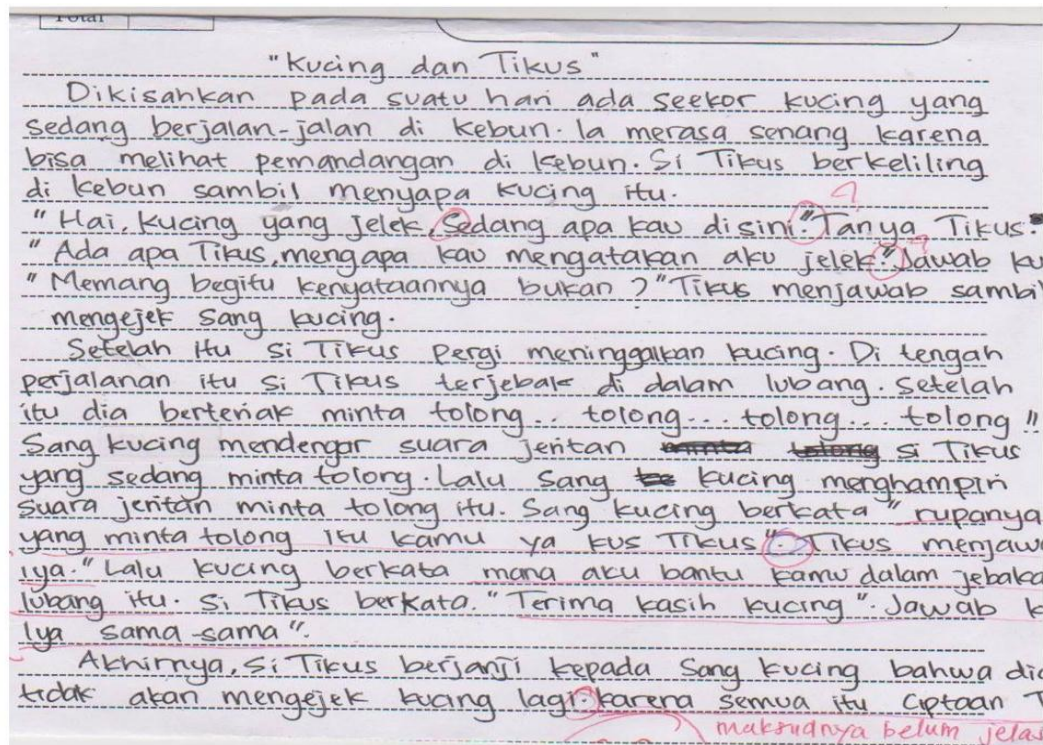 Total
"Kucing dan Tikus"
Dikisahkan pada suatu hari ada seekor kucing yang
sedang berjalan-jalan di kebun. Ia merasa senang karena
bisa melihat pemandangan di kebun. Si Tikus berkeliling
di kebun sambil menyapa kucing itu.
"Hai, kucing yang jelek, Sedang apa kau disini." Tanya Tikus.
"Ada apa Tikus, mengapa kau mengatakan aku jelek." Jawab ku
"Memang begitu kenyataannya bukan ?" Tikus menjawab sambil
mengejek sang kucing.
Setelah itu si Tikus pergi meninggalkan kucing. Di tengah
perjalanan itu si Tikus terjebak di dalam lubang. Setelah
itu dia berteriak minta tolong.. tolong... tolong... tolong !!
Sang kucing mendengar suara jeritan si Tikus
yang sedang minta tolong. Lalu sang kucing menghampiri
suara jeritan minta tolong itu. Sang kucing berkata "rupanya
yang minta tolong itu kamu ya kus Tikus". Tikus menjawa
iya." Lalu kucing berkata mana aku bantu kamu dalam jebaka
lubang itu. Si Tikus berkata. "Terima kasih kucing". Jawab k
Iya sama-sama".
Akhirnya, si Tikus berjanji kepada sang kucing bahwa dia
tidak akan mengejek kucing lagi. karena semua itu ciptaan T
maksudnya belum jelas